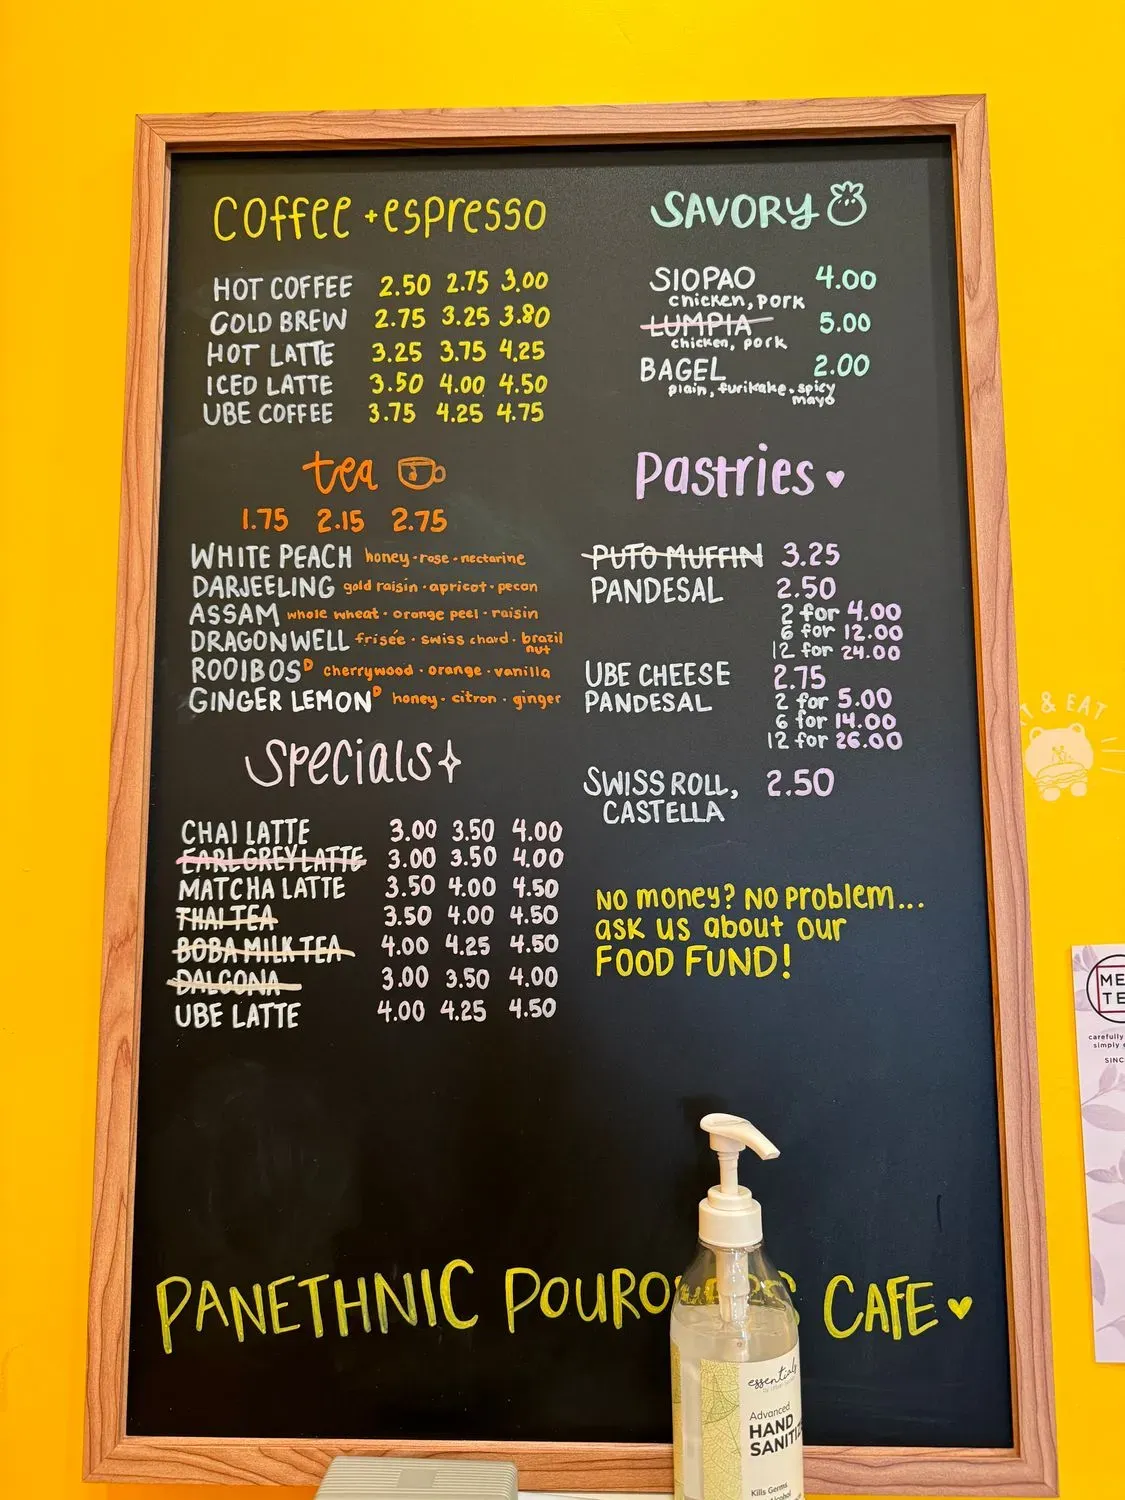 Coffee + espresso
HOT COFFEE 2.50 2.75 3.00
COLD BREW 2.75 3.25 3.80
HOT LATTE 3.25 3.75 4.25
ICED LATTE 3.50 4.00 4.50
UBE COFFEE 3.75 4.25 4.75
tea
1.75 2.15 2.75
WHITE PEACH honey · rose · nectarine
DARJEELING gold raisin · apricot · pecan
ASSAM whole wheat · orange peel · raisin
DRAGONWELL frisée · swiss chard · brazil
nut
ROOIBOS D cherrywood · orange · vanilla
GINGER LEMON D honey · citron · ginger
Specials
CHAI LATTE 3.00 3.50 4.00
EARL GREY LATTE 3.00 3.50 4.00
MATCHA LATTE 3.50 4.00 4.50
THAI TEA 3.50 4.00 4.50
BOBA MILK TEA 4.00 4.25 4.50
DALGONA 3.00 3.50 4.00
UBE LATTE 4.00 4.25 4.50
SAVORY
SIOPAO 4.00
chicken, pork
LUMPIA 5.00
chicken, pork
BAGEL 2.00
plain, furikake, spicy
mayo
Pastries ♥
PUTO MUFFIN 3.25
PANDESAL 2.50
2 for 4.00
6 for 12.00
12 for 24.00
UBE CHEESE 2.75
PANDESAL 2 for 5.00
6 for 14.00
12 for 26.00
SWISS ROLL, 2.50
CASTELLA
No money? No problem...
ask us about our
FOOD FUND!
PANETHNIC CAFE ♥
& EAT
ME
TE
carefully
simply
SINC
essentials
Advanced
HAND
SANITIZ
Kills Germs